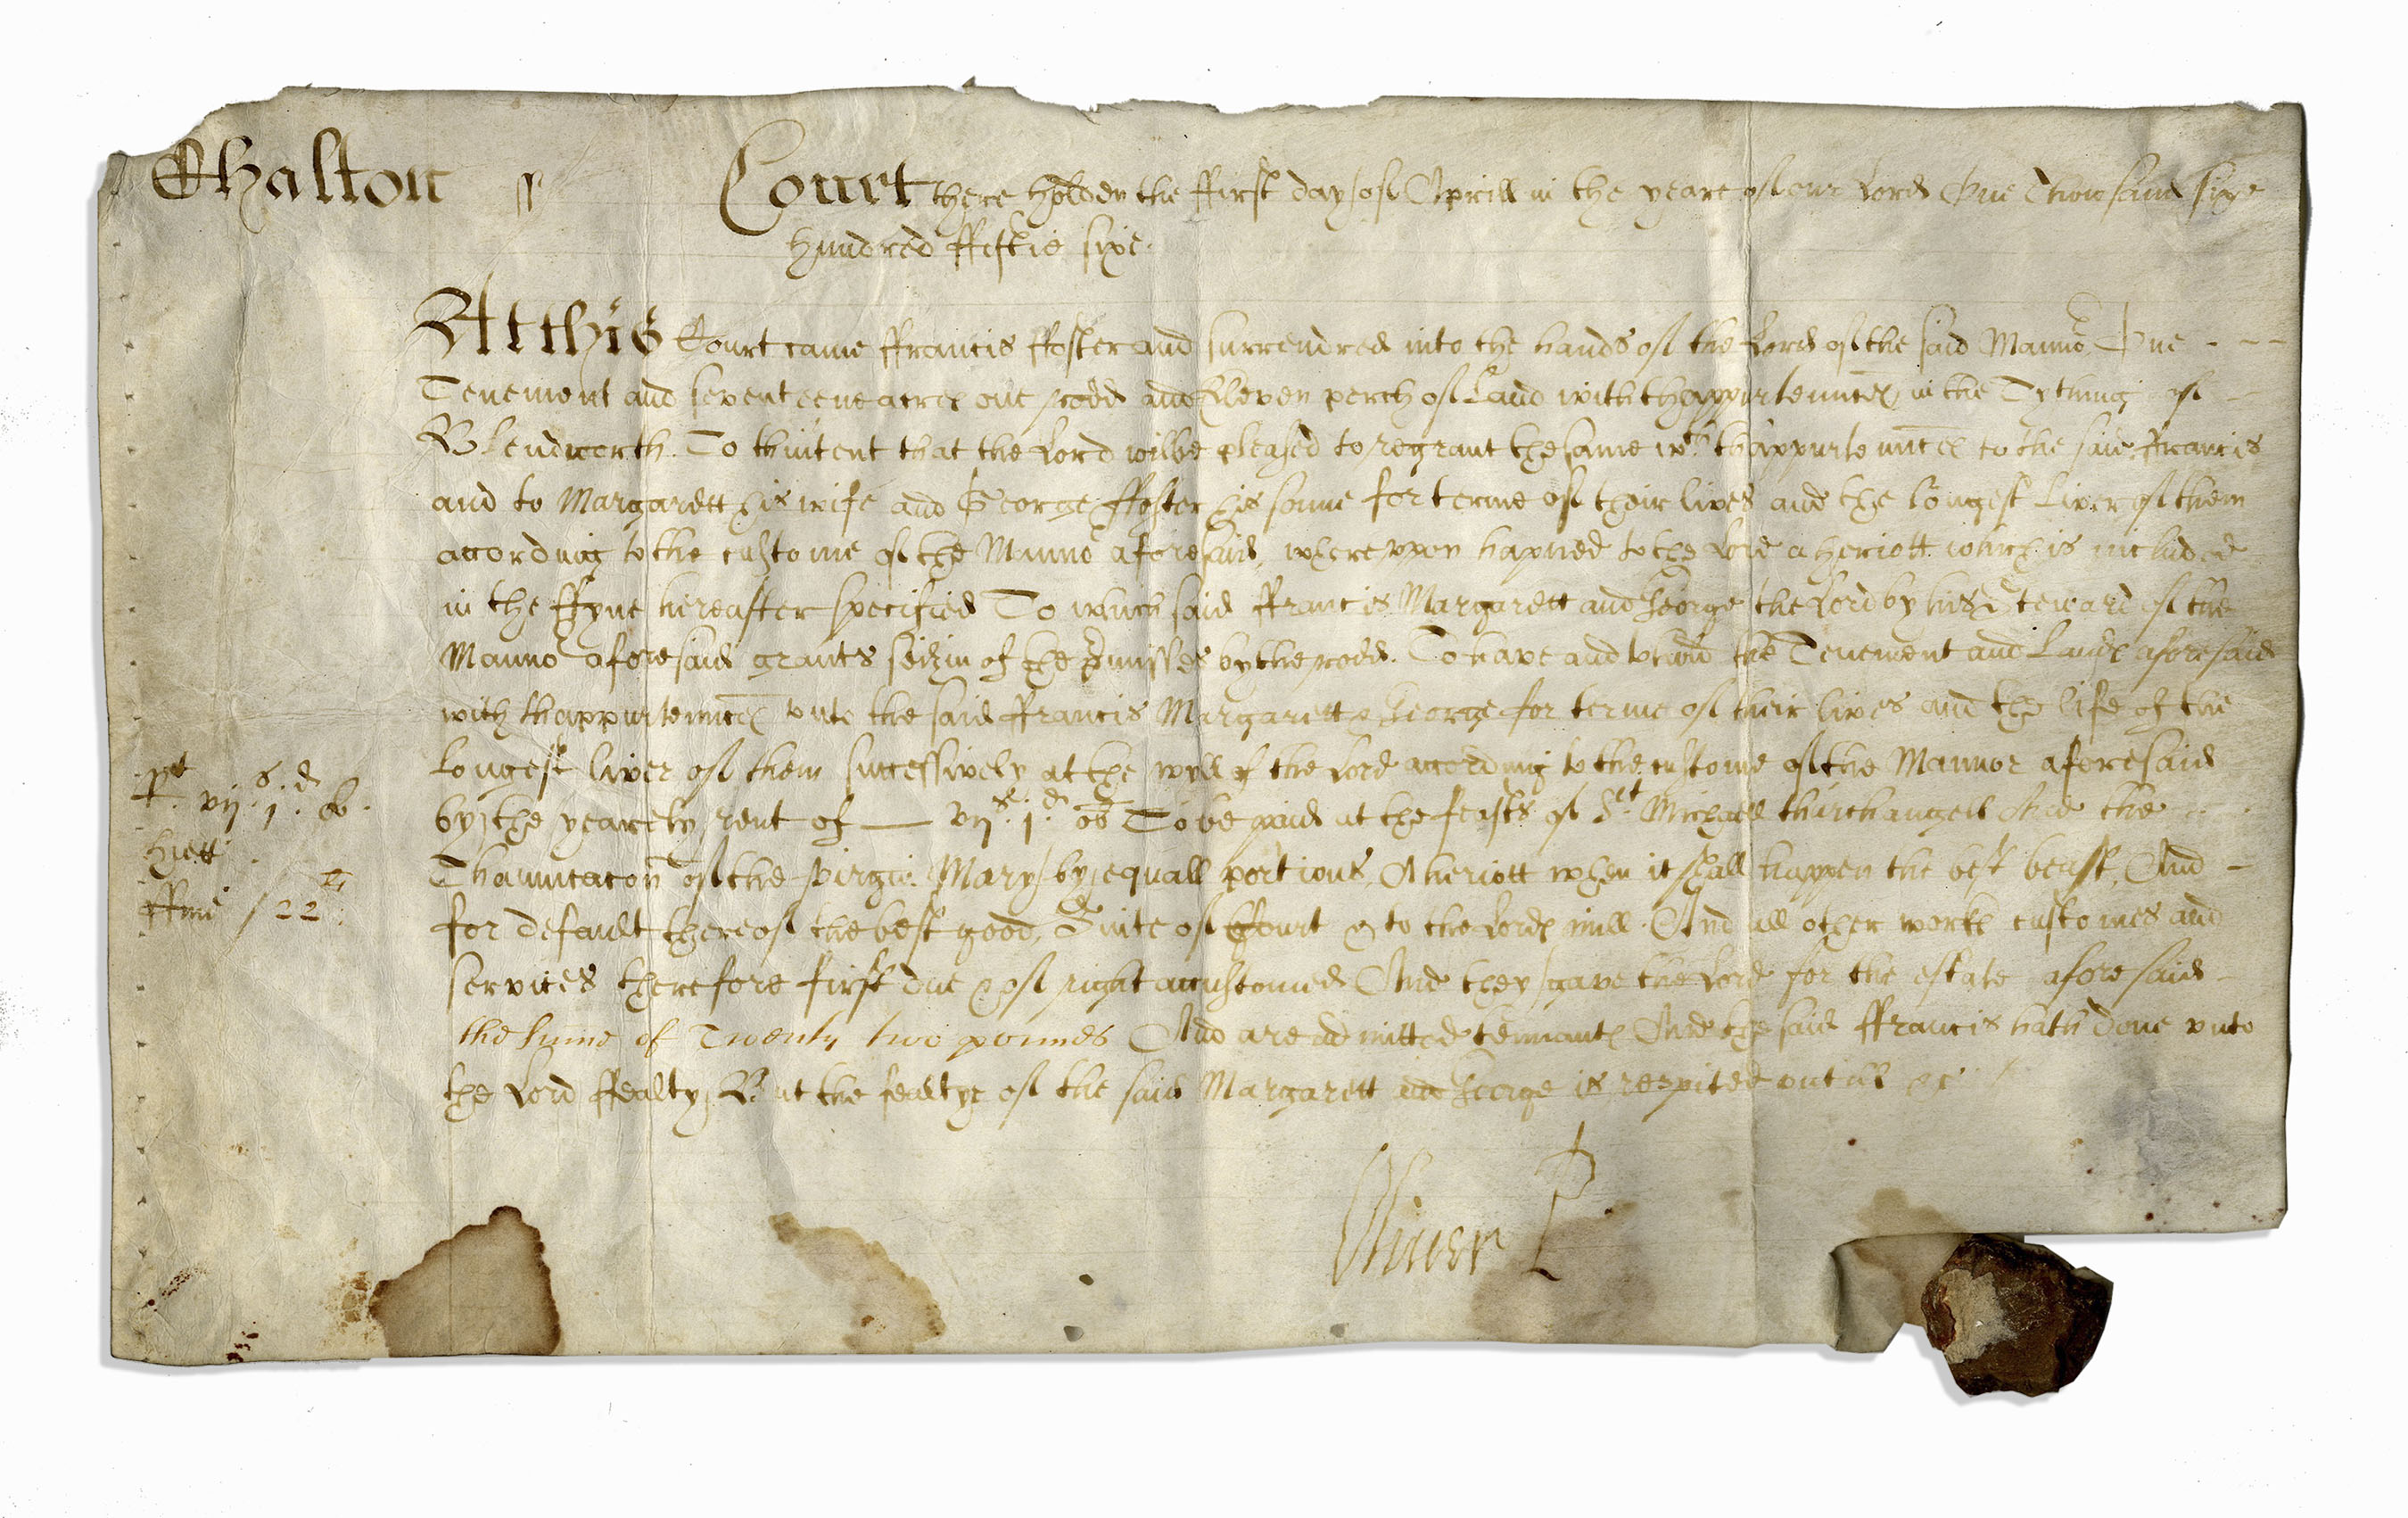 Chalton ss Court there holden the ffirst day of Aprill in the yeare of our Lord One Thousand sixe
hundred ffiftie sixe.
At this Court came ffrancis ffoster and surrendred into the hands of the Lord of the said Manno^r One
Tenement and seventeene acres one rodd and Eleven perch of Land with thappurtenncs in the Tything of
Blendworth. To thintent that the Lord wilbe pleased to regrant the same w^th thappurtenncs to the said ffrancis
and to Margarett his wife and George ffoster his sonne for terme of their lives and the longest Liver of them
according to the custome of the Manno^r aforesaid, whereuppon hapned to the Lord a heriott which is included
in the ffyne hereafter specified To which said ffrancis Margarett and George the Lord by his Steward of the
Manno^r aforesaid grants seizin of the p̱misses by the rodd. To have and to hold the Tenement and Lands aforesaid
with thappurtenncs unto the said ffrancis Margarett & George for terme of their lives and the life of the
longest liver of them successively at the wyll of the Lord according to the custome of the Mannor aforesaid
R^t vij^s. j^d. ob.
by the yearely rent of — vij^s. j^d. ob To be paid at the feasts of S^t. Michaell tharchangell And the
hiett
Thanunciacon of the virgin Mary by equall portions, A heriott when it shall happen the best beast, And
ffine 22^li
for default thereof the best good, Suite of Court & to the Lords mill. And all other works customes and
services therefore first due & of right accustomed And they gave the Lord for the estate aforesaid
the sume of Twenty two pounds And are admitted tennants And the said ffrancis hath done unto
the Lord ffealty, But the fealtye of the said Margarett and George is respited untill &c
Oliver P